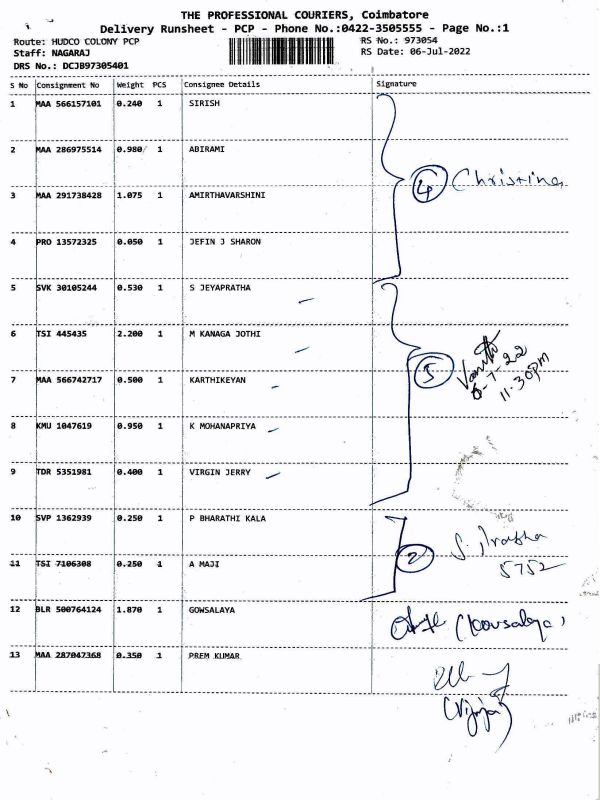 THE PROFESSIONAL COURIERS, Coimbatore
Delivery Runsheet - PCP - Phone No.:0422-3505555 - Page No.:1
Route: HUDCO COLONY PCP RS No.: 973054
Staff: NAGARAJ RS Date: 06-Jul-2022
DRS No.: DCJB97305401
S No Consignment No Weight PCS Consignee Details Signature
1 MAA 566157101 0.240 1 SIRISH
2 MAA 286975514 0.980 1 ABIRAMI
4 Christina
3 MAA 291738428 1.075 1 AMIRTHAVARSHINI
4 PRO 13572325 0.050 1 JEFIN J SHARON
5 SVK 30105244 0.530 1 S JEYAPRATHA
6 TSI 445435 2.200 1 M KANAGA JOTHI
5
6-7-22
11.30pm
7 MAA 566742717 0.500 1 KARTHIKEYAN
8 KMU 1047619 0.950 1 K MOHANAPRIYA
9 TDR 5351981 0.400 1 VIRGIN JERRY
10 SVP 1362939 0.250 1 P BHARATHI KALA
2
5752
11 TSI 7106308 0.250 1 A MAJI
12 BLR 500764124 1.870 1 GOWSALAYA
13 MAA 287047368 0.350 1 PREM KUMAR